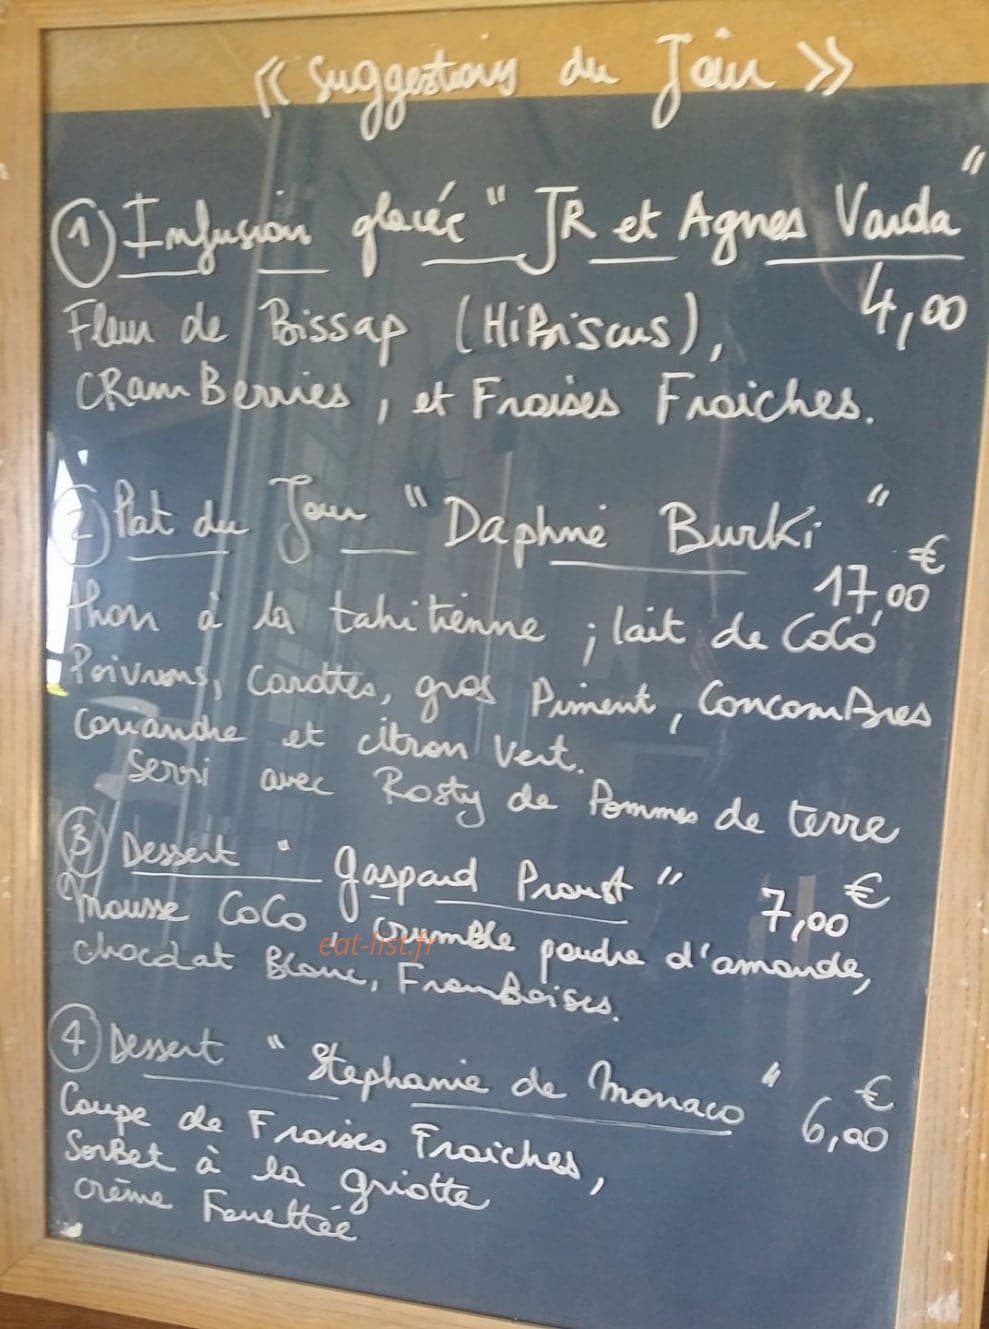 « Suggestions du Jour »
① Infusion glacée " JR et Agnes Varda "
4,00
Fleur de Bissap (HiBiscus),
CRamBerries, et Fraises Fraîches.
② Plat du Jour " Daphné Burki "
17,00 €
thon à la tahitienne ; lait de CoCo
Poivrons, Carottes, gros Piment, ConcomBres
coriandre et citron vert.
Servi avec Rosty de Pommes de terre
③ Dessert " Gaspard Proust " 7,00 €
Mousse CoCo, crumble poudre d'amande,
chocolat Blanc, FramBoises.
eat-list.fr
④ Dessert " Stephanie de Monaco " 6,00 €
Coupe de Fraises Fraîches,
SorBet à la griotte
crème Fouettée